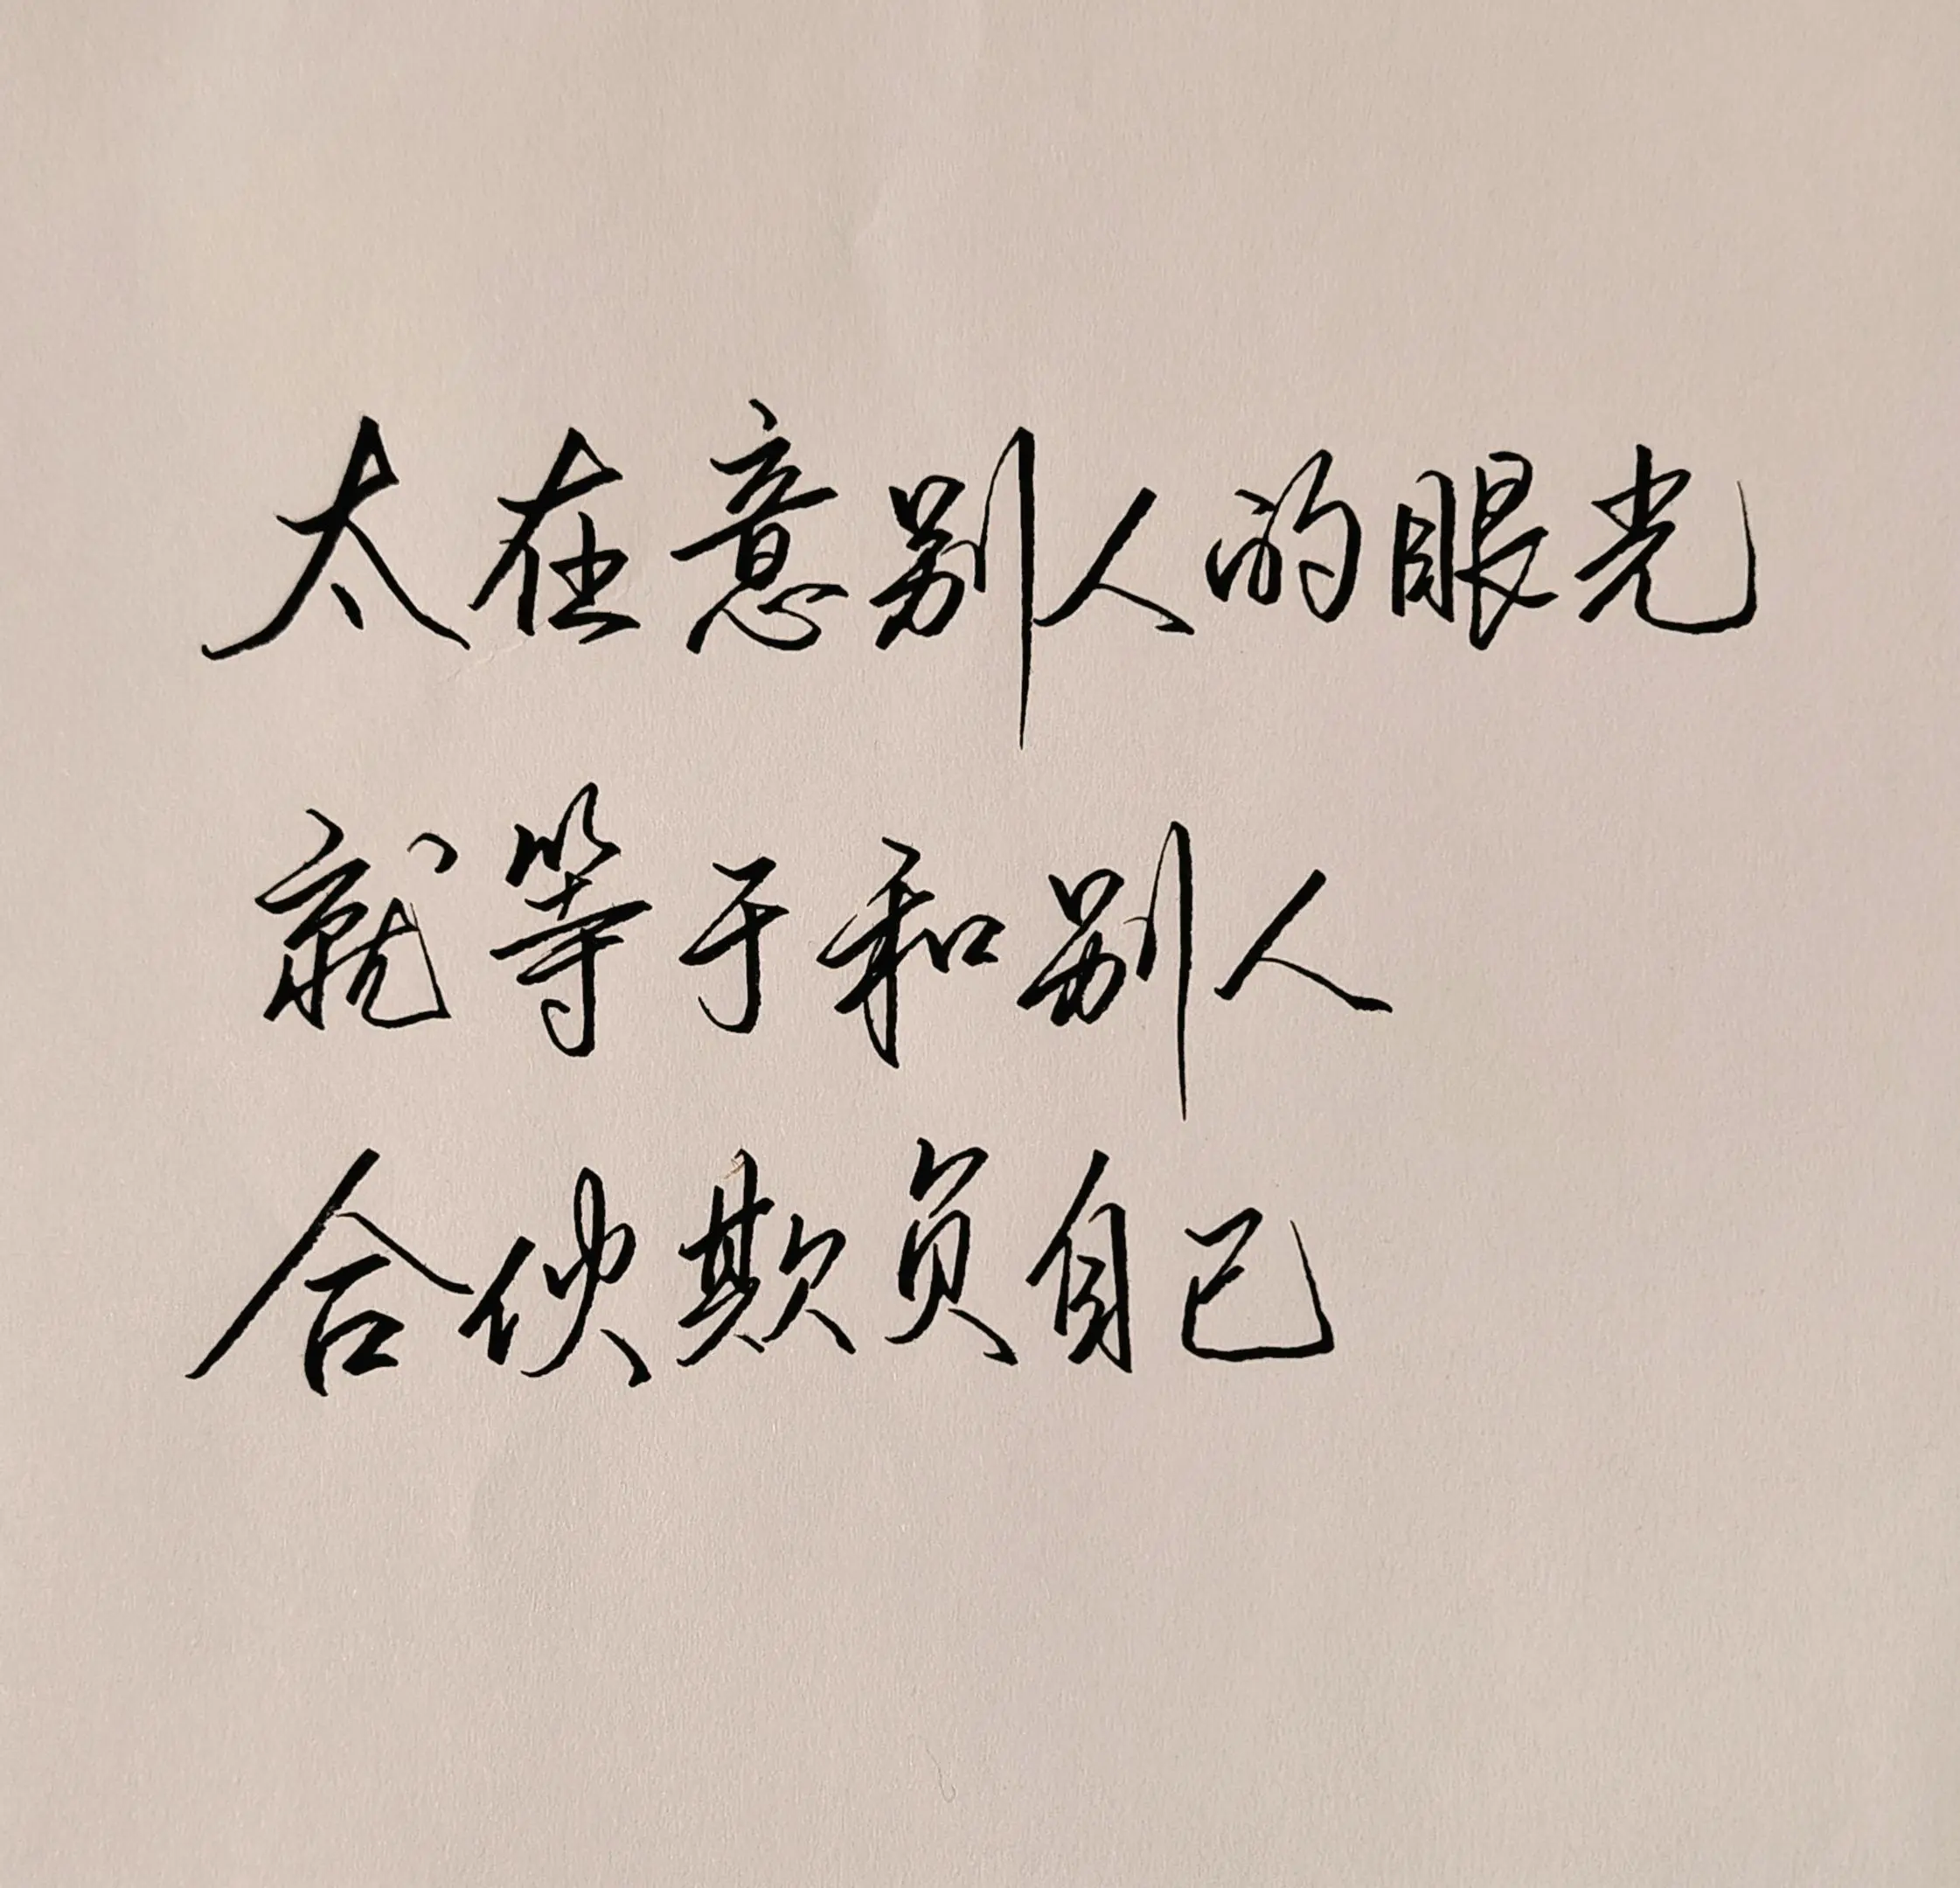 太在意别人的眼光
就等于和别人
合伙欺负自己